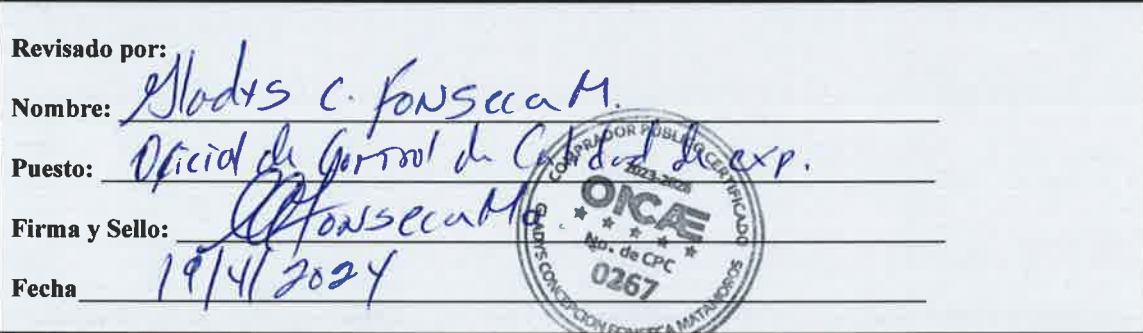 Revisado por:
Nombre: Gladys C. Fonseca M.
Puesto: Oficial de Control de Calidad de exp.
Firma y Sello: Fonseca M
Fecha 19/4/2024
COMPRADOR PUBLICO CERTIFICADO
2023-2026
ONCAE
No. de CPC
0267
GLADYS CONCEPCION FONSECA MATAMOROS